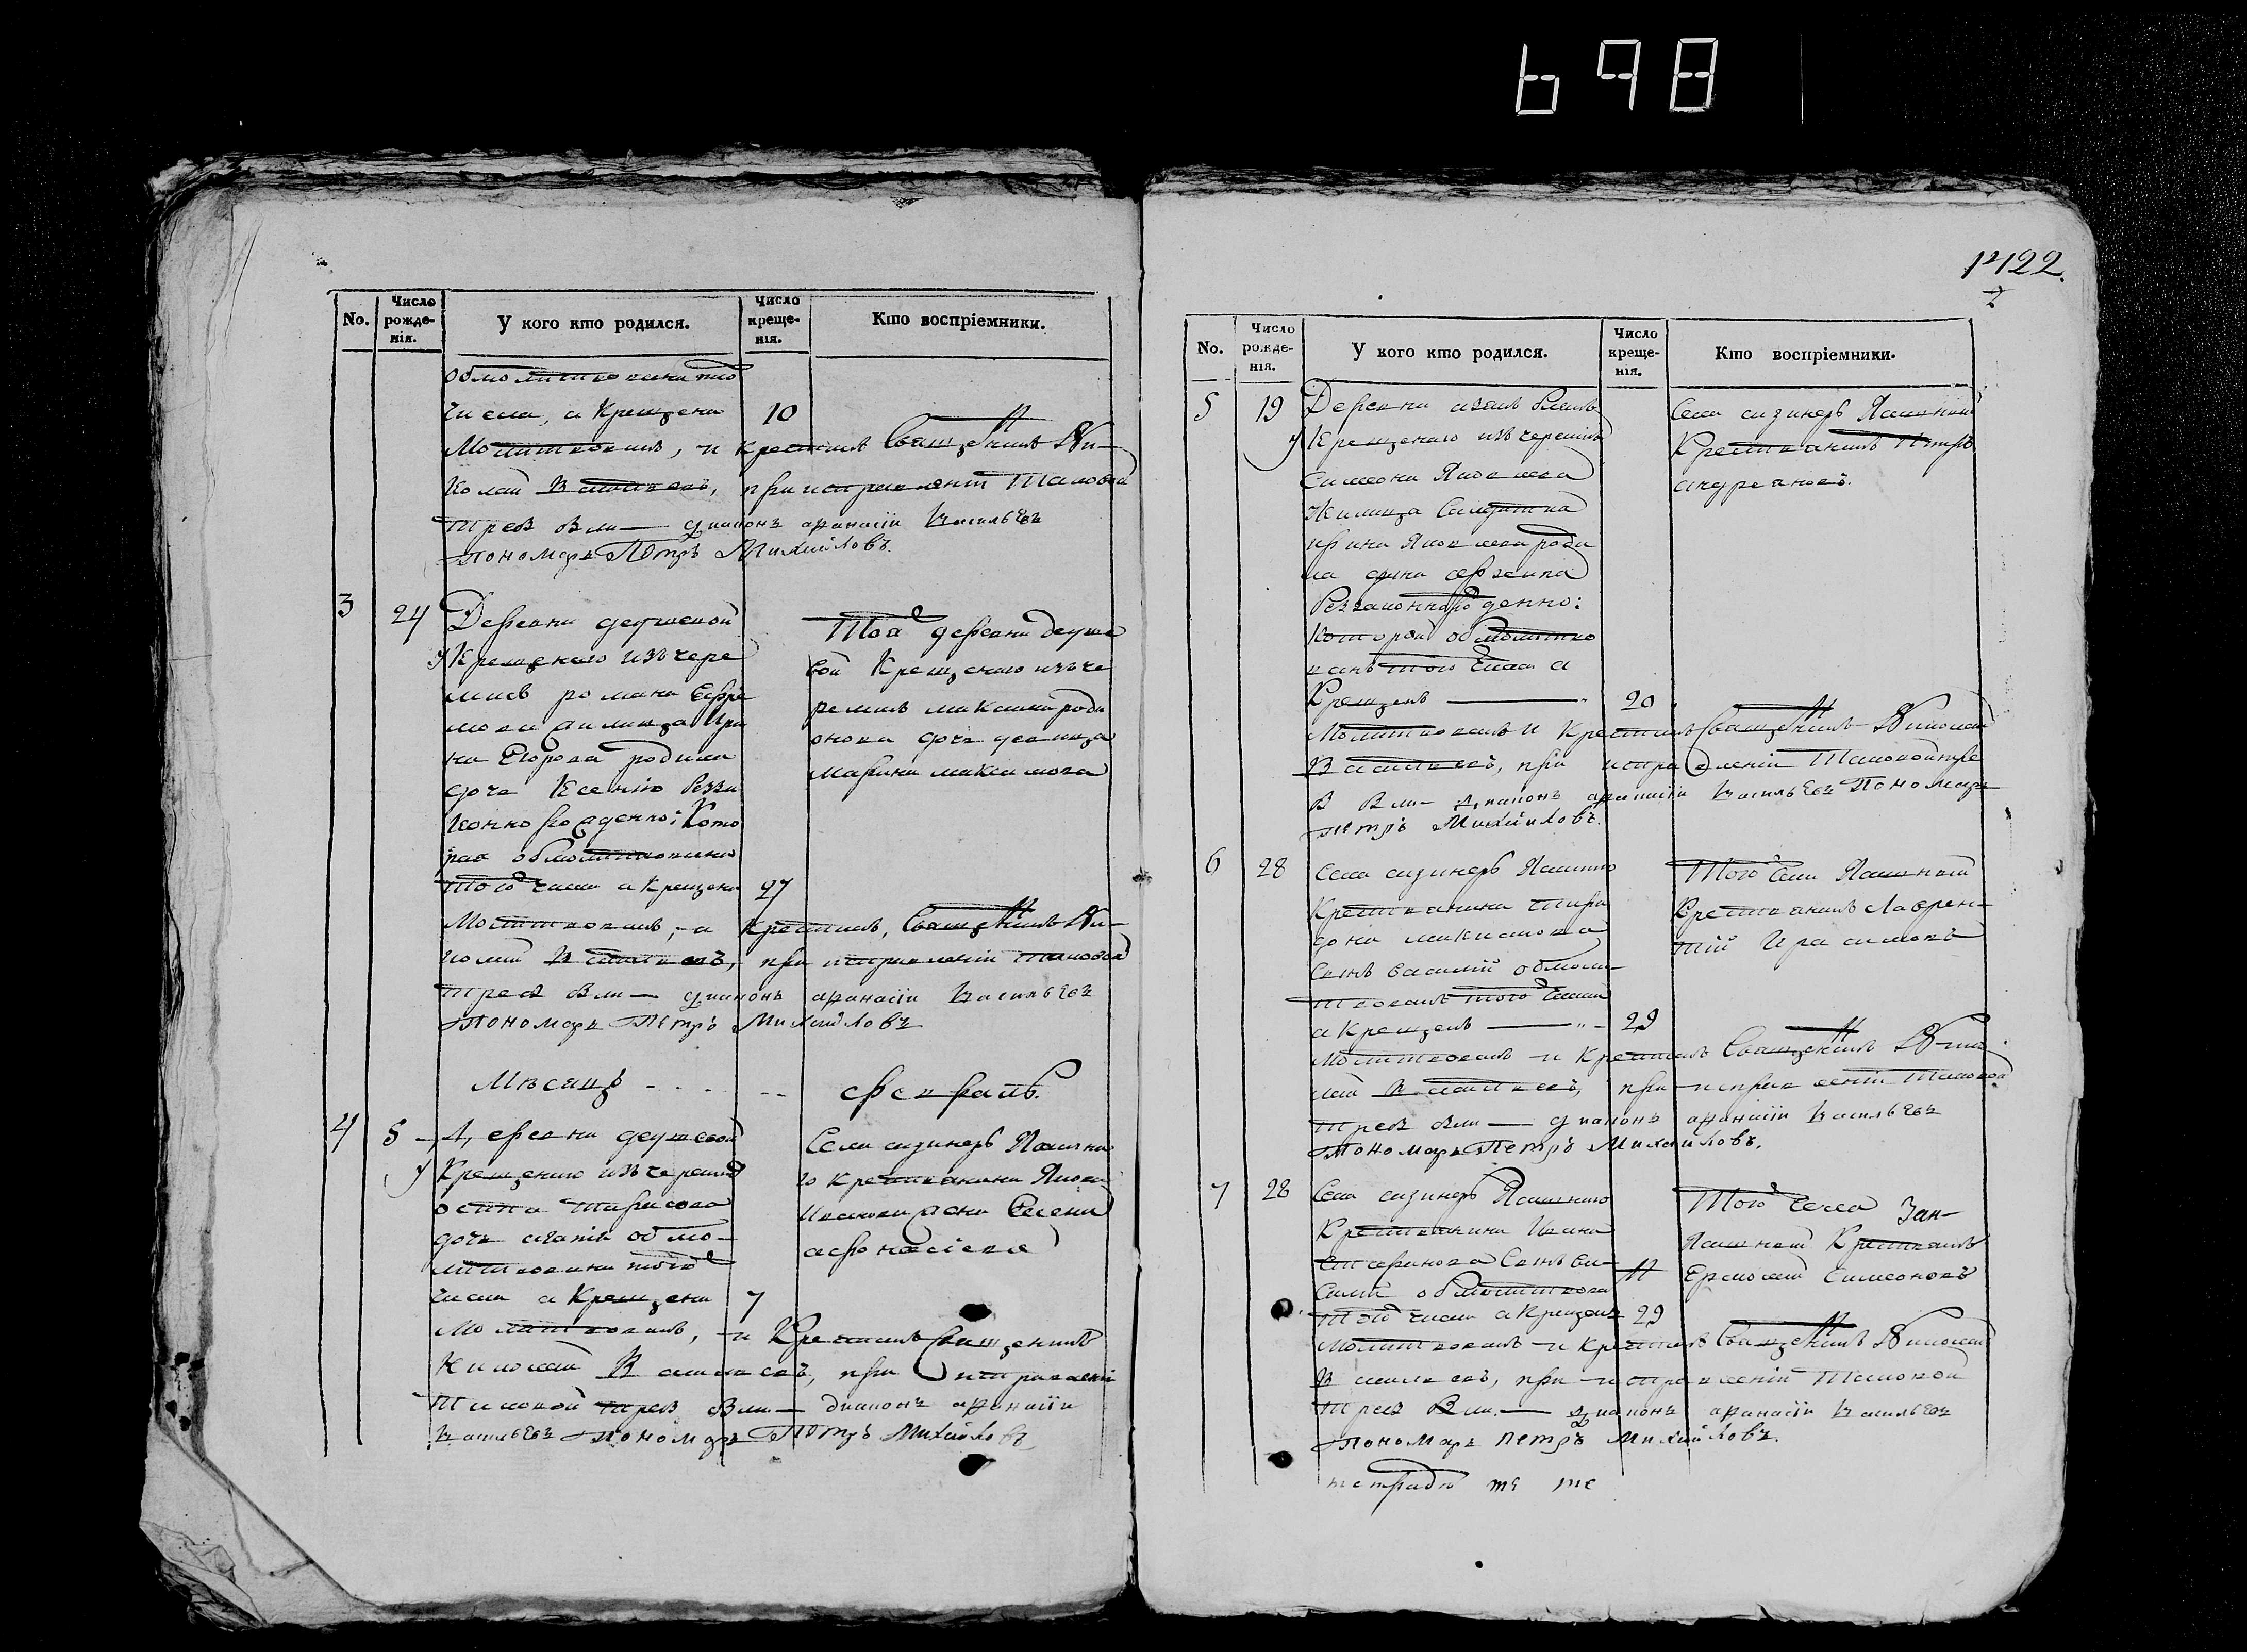 698
No.
Число рожде-нія.
У кого кто родился.
Число креще-нія.
Кто воспріемники.
обмолитвована того
числа, а Крещена 10
Молитвовалъ, и крестилъ Священникъ Ни-
колай Васильевъ, при исправленіи таковой
треб діаконъ афанасіи Васильевъ
Пономарь Петръ Михайловъ.
3 24 Деревни
у Крещенаго изъ чере
мисъ романа Ефре
мова жилица Ири
на Егорова родила
дочь Ксенію незза
коннорожденно: Кото
рая обмолитвована
того числа а Крещена 27
Той деревни
вой Крещенаго изъ че
ремисъ максима роди
онова дочь девица
марина максимова
Молитвовалъ, а Крестилъ, Священникъ Ни-
колай Васильевъ, при исправленіи таковой
треб діаконъ афанасіи Васильевъ
Пономарь Петръ Михайловъ
Мѣсяцъ - - - - - февраль.
4 5 Деревни
у Крещенаго изъ черемисъ
осипа тарасова
дочь обмо-
литвована того
числа а Крещена 7
Села сизинеръ Яшачна
го крестьянина Якова
Иванова жена Елена
афонасіева
Молитвовалъ, и Крестилъ Священникъ
Николай Васильевъ, при исправленіи
Таковой треб діаконъ афанасіи
Васильевъ Пономарь Петръ Михайловъ
1422
2
No.
Число рожде-нія.
У кого кто родился.
Число креще-нія.
Кто воспріемники.
5 19 Деревни
у Крещенаго изъ черемисъ
Симеона Яковлева
Жилица Солдатка
ирина Яковлева роди
ла сына
Незаконнорожденно:
Которой обмолитво
ванъ того числа а
Крещенъ 20
Села сизинеръ Яшачной
Крестьянинъ Петръ
андреяновъ.
Молитвовалъ и Крестилъ Священникъ Николай
Васильевъ, при исправленіи Таковой тре
б діаконъ афанасіи Васильевъ Пономарь
Петръ Михайловъ.
6 28 Села сизинеръ Яшачнаго
Крестьянина
максимова
Сынъ василій обмоли-
твованъ того числа
а Крещенъ 29
Того Села Яшачной
Крестьянинъ Лаврен-
тій Ирасимовъ
Молитвовалъ и Крестилъ Священникъ Нико-
лай Васильевъ, при исправленіи Таковой
треб діаконъ афанасіи Васильевъ
Пономарь Петръ Михайловъ.
7 28 Села сизинеръ Яшачнаго
Крестьянина Ивана
Сынъ ва-
силій обмолитвова
того числа а Крещенъ 29
Того Села
Яшачной Крестьянинъ
Ермолай Симеоновъ
Молитвовалъ и крестилъ Священникъ Николай
Васильевъ, при исправленіи Таковой
треб діаконъ афанасіи Васильевъ
Пономарь Петръ Михайловъ.
тетрадь